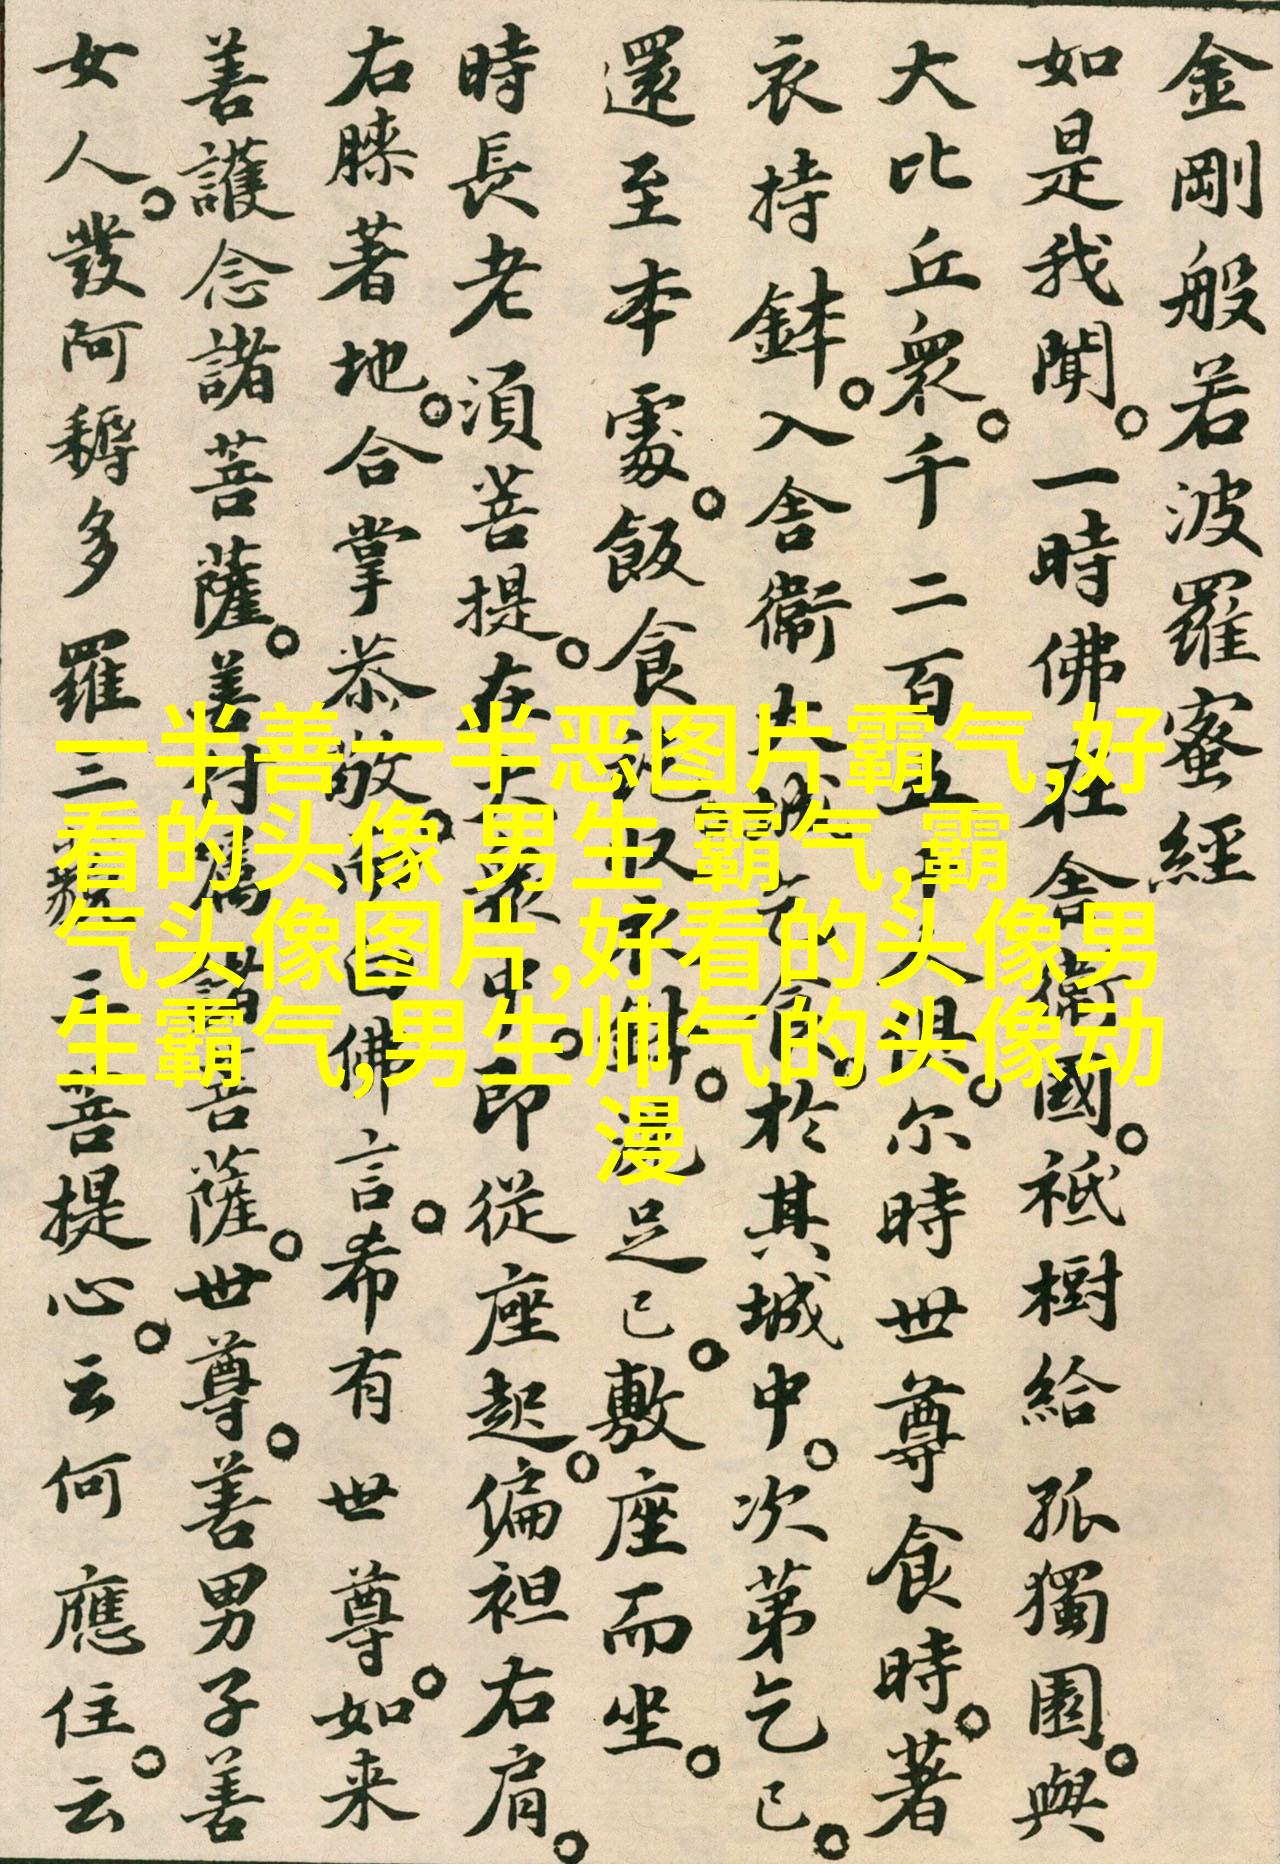 金剛般若波羅蜜經
如是我聞。一時佛在舍衛國。祇樹給孤獨園。與
大比丘眾。千二百五人俱。尔時世尊食時。著
衣持鉢。入舍衛大城乞食。於其城中。次第乞已。
還至本處。飯食訖收衣鉢。洗足已。敷座而坐。
時長老須菩提。在大衆中。即從座起。偏袒右肩。
右膝著地。合掌恭敬。而白佛言。希有世尊。如来
善護念諸菩薩。善付嘱諸菩薩。世尊。善男子善
女人。發阿耨多羅三藐三菩提心。云何應住。云
一半善一半恶图片霸气,好
看的头像 男生 霸气,霸
气头像图片,好看的头像男
生霸气,男生帅气的头像动
漫